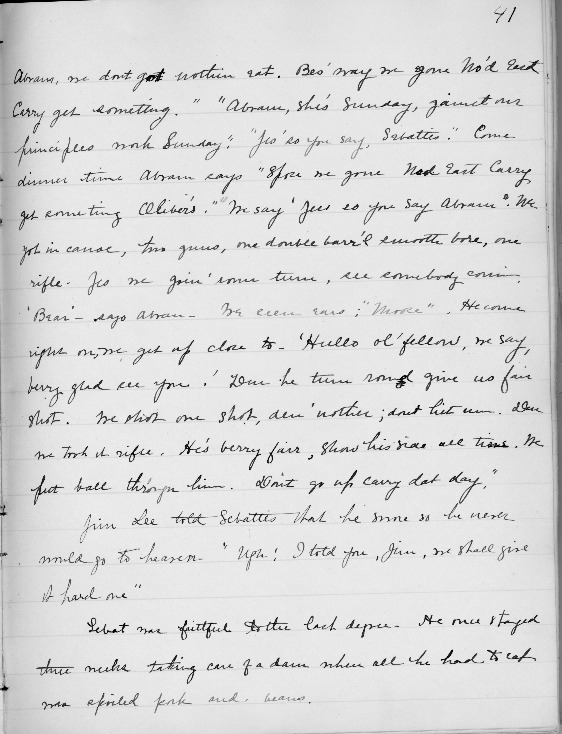 41
Abram, me dont got nothin eat. Bes' way me gone No'd East
Carry get something." "Abram, she's Sunday, gainst our
principles work Sunday"; "Jes' so you say, Sebattis." Come
dinner time Abram says "S'pose me gone Nod East Carry
get something Oliber's." "Me say 'Jes so you say Abram". We
got in canoe, two guns, one double barr'l smooth bore, one
rifle. Jes me goin' roun turn, see somebody comin.
'Bear'- says Abram - We seen ears; "Moose". He come
right on, me get up close to- 'Hullo ol' fellow, me say,
berry glad see you!' Den he turn round give us fair
shot. We shot one shot, den 'nother; dont hit um. Den
me took it rifle. He's berry fair, show his side all time. We
put ball through him. Don't go up carry dat day."
Jim Lee told Sebattis that he swore so he never
would go to heaven. "Ugh! I told you, Jim, me shall give
it hard one"
Sebat was faithful to the last degree - He once stayed
three weeks taking care of a dam when all he had to eat
was spoiled pork and beans.